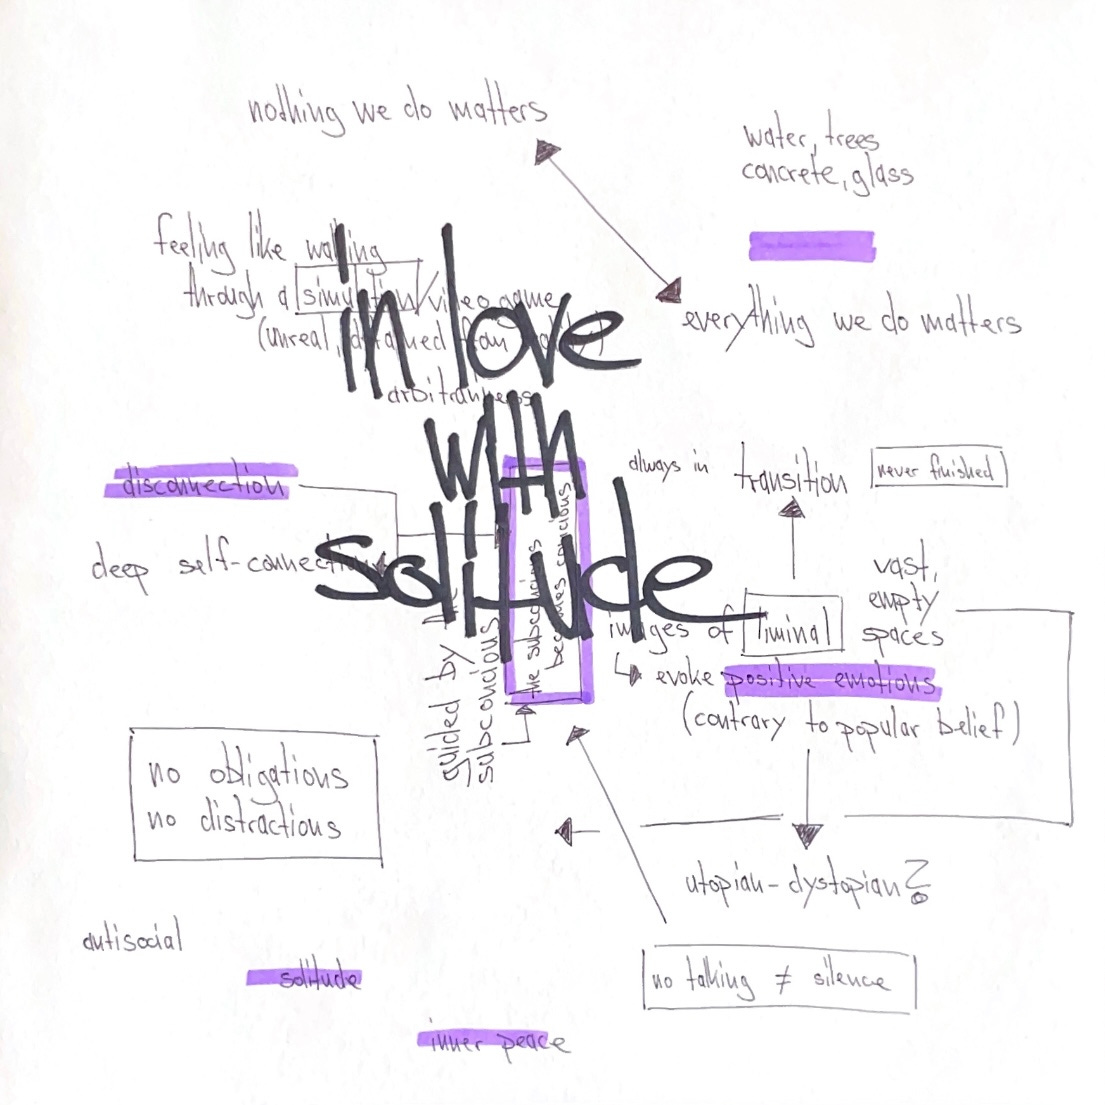 nothing we do matters
water, trees
concrete, glass
feeling like walking
through a simulation/video game
(unreal, detached from reality)
everything we do matters
arbitrariness
in love
with
solitude
always in transition
never finished
disconnection
deep self-connection
vast,
empty
spaces
images of liminal
↳ evoke positive emotions
(contrary to popular belief)
guided by the
subconcious
the subconcious
becomes concious
no obligations
no distractions
utopian-dystopian?
antisocial
solitude
no talking ≠ silence
inner peace